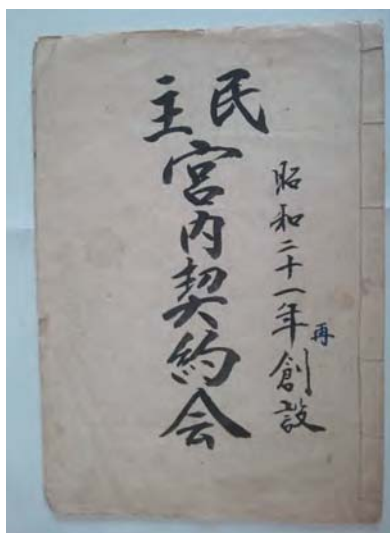 昭和二十一年再創設
民主
宮内契約会